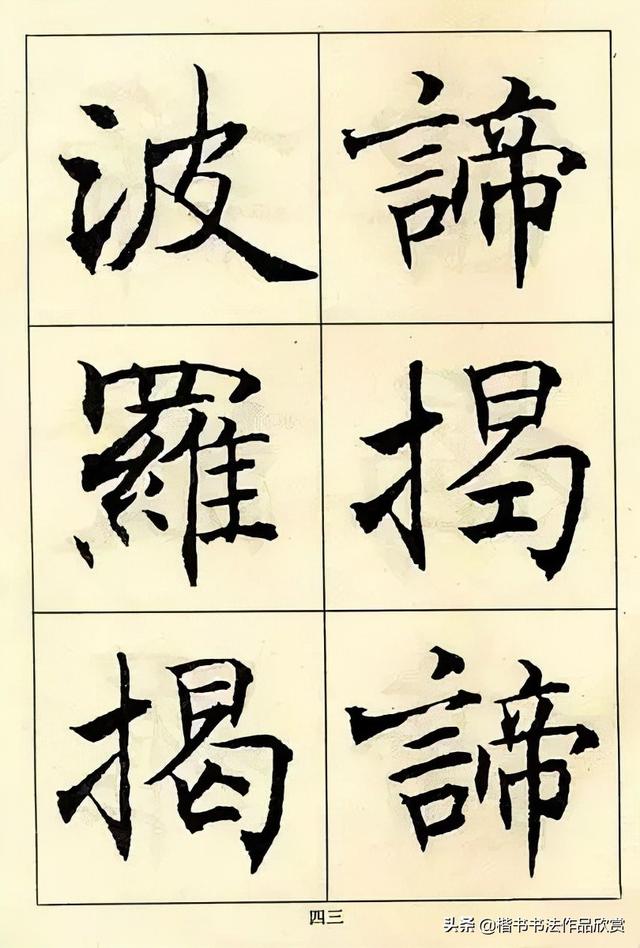 諦揭諦
波羅揭
四三
头条 @楷书书法作品欣赏